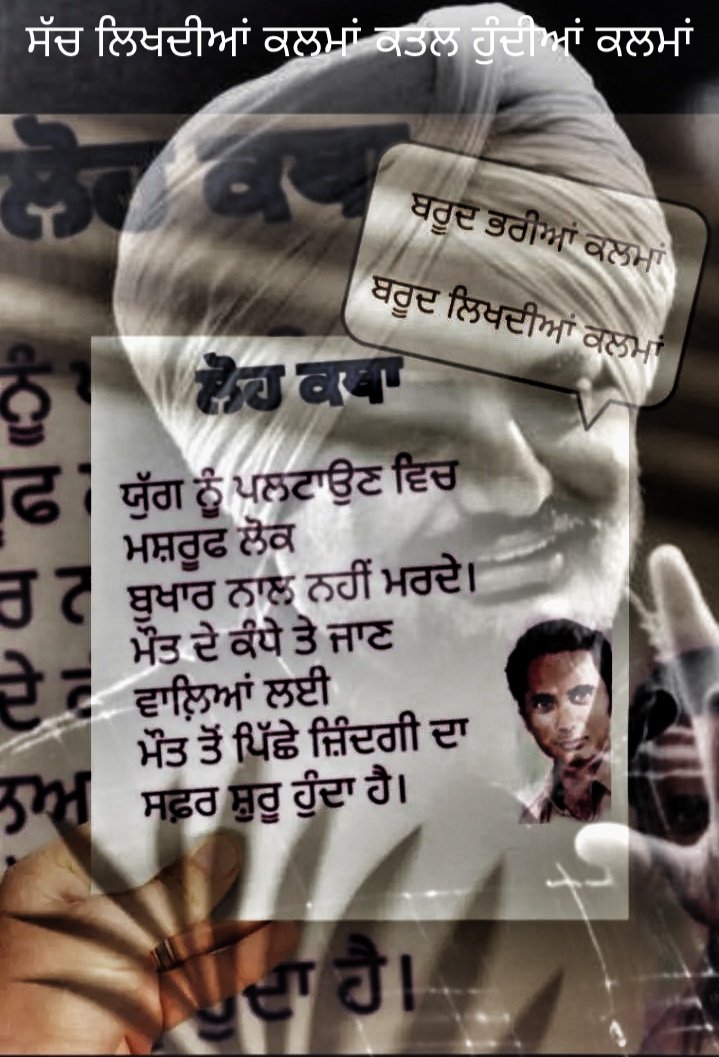 ਸੱਚ ਲਿਖਦੀਆਂ ਕਲਮਾਂ ਕਤਲ ਹੁੰਦੀਆਂ ਕਲਮਾਂ
ਲੋਹ ਕਥਾ
ਬਰੂਦ ਭਰੀਆਂ ਕਲਮਾਂ
ਬਰੂਦ ਲਿਖਦੀਆਂ ਕਲਮਾਂ
ਲੋਹ ਕਥਾ
ਯੁੱਗ ਨੂੰ ਪਲਟਾਉਣ ਵਿਚ
ਮਸ਼ਰੂਫ ਲੋਕ
ਬੁਖਾਰ ਨਾਲ ਨਹੀਂ ਮਰਦੇ।
ਮੌਤ ਦੇ ਕੰਧੇ ਤੇ ਜਾਣ
ਵਾਲ਼ਿਆਂ ਲਈ
ਮੌਤ ਤੋਂ ਪਿੱਛੇ ਜ਼ਿੰਦਗੀ ਦਾ
ਸਫ਼ਰ ਸ਼ੁਰੂ ਹੁੰਦਾ ਹੈ।
ਹੁੰਦਾ ਹੈ।